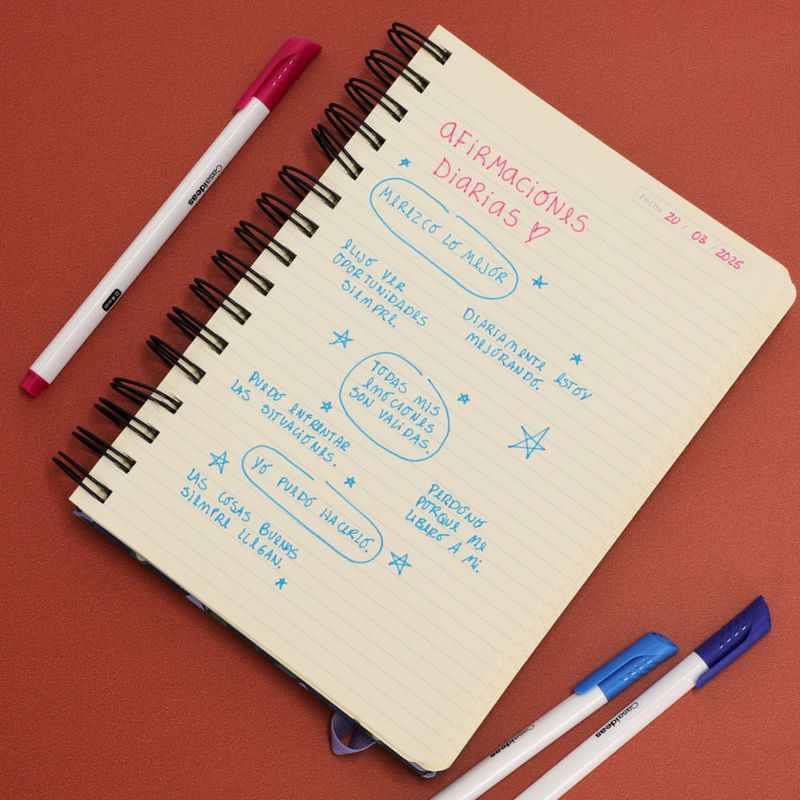 AFIRMACIONES
DIARIAS
Fecha 20 / 03 / 2025
MEREZCO LO MEJOR
ELIJO VER
OPORTUNIDADES
SIEMPRE.
DIARIAMENTE ESTOY
MEJORANDO.
TODAS MIS
EMOCIONES
SON VALIDAS.
PUEDO ENFRENTAR
LAS SITUACIONES.
YO PUEDO HACERLO.
PERDONO
PORQUE ME
LIBERO A MI.
LAS COSAS BUENAS
SIEMPRE LLEGAN.
Casaideas
0.4 mm
Casaideas
Casaideas